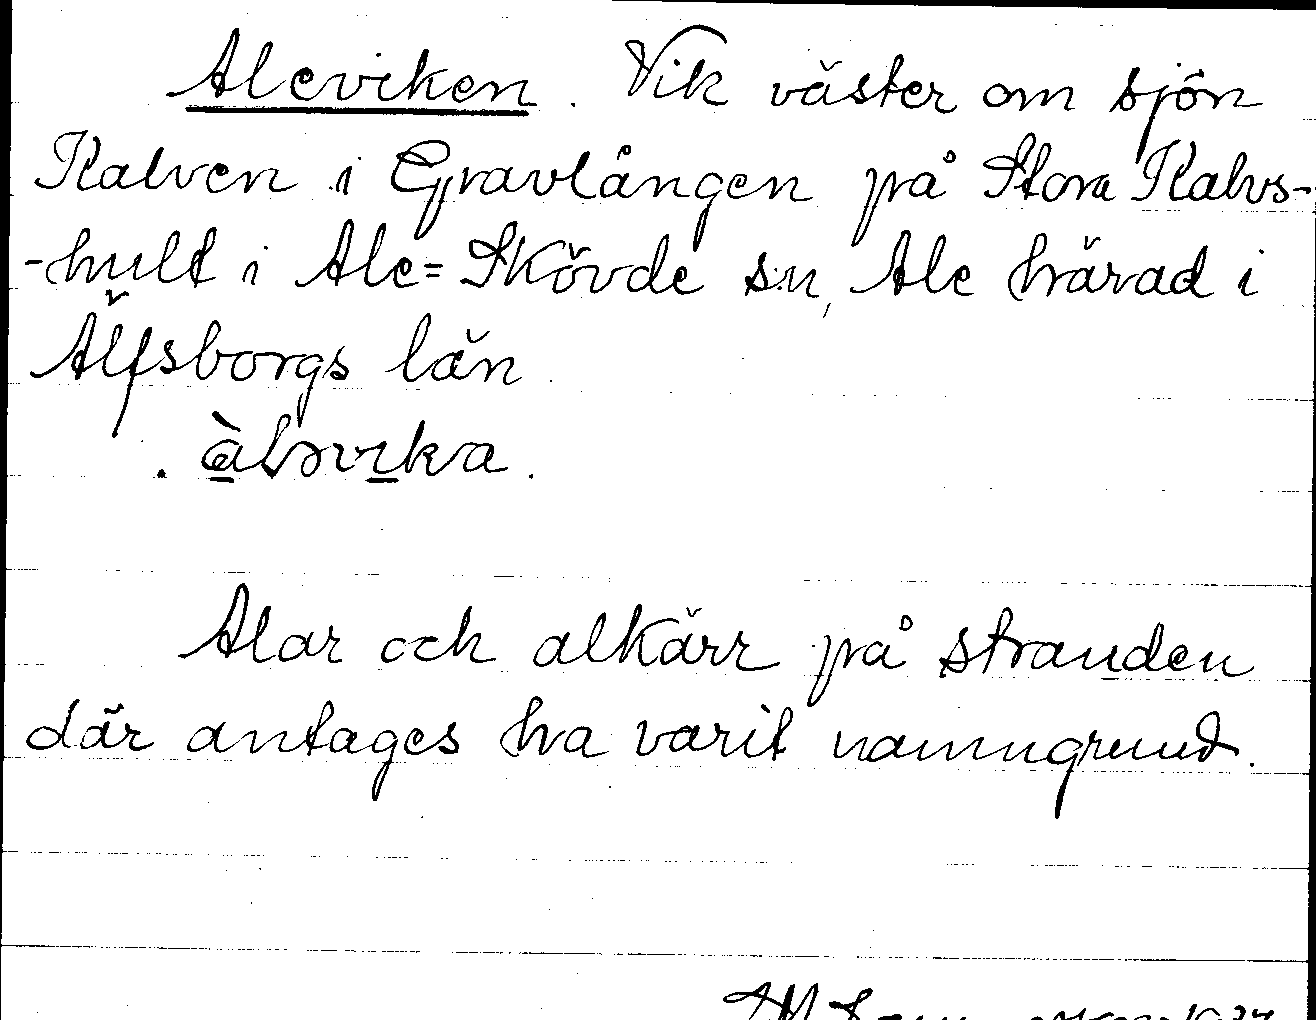 Aleviken. Vik väster om sjön
Kalven i Gravlången på Stora Kalvs-
-hult i Ale=Skövde sn, Ale härad i
Älfsborgs län
. àləvika.
Alar och alkärr på stranden
där antages ha varit namngrund.